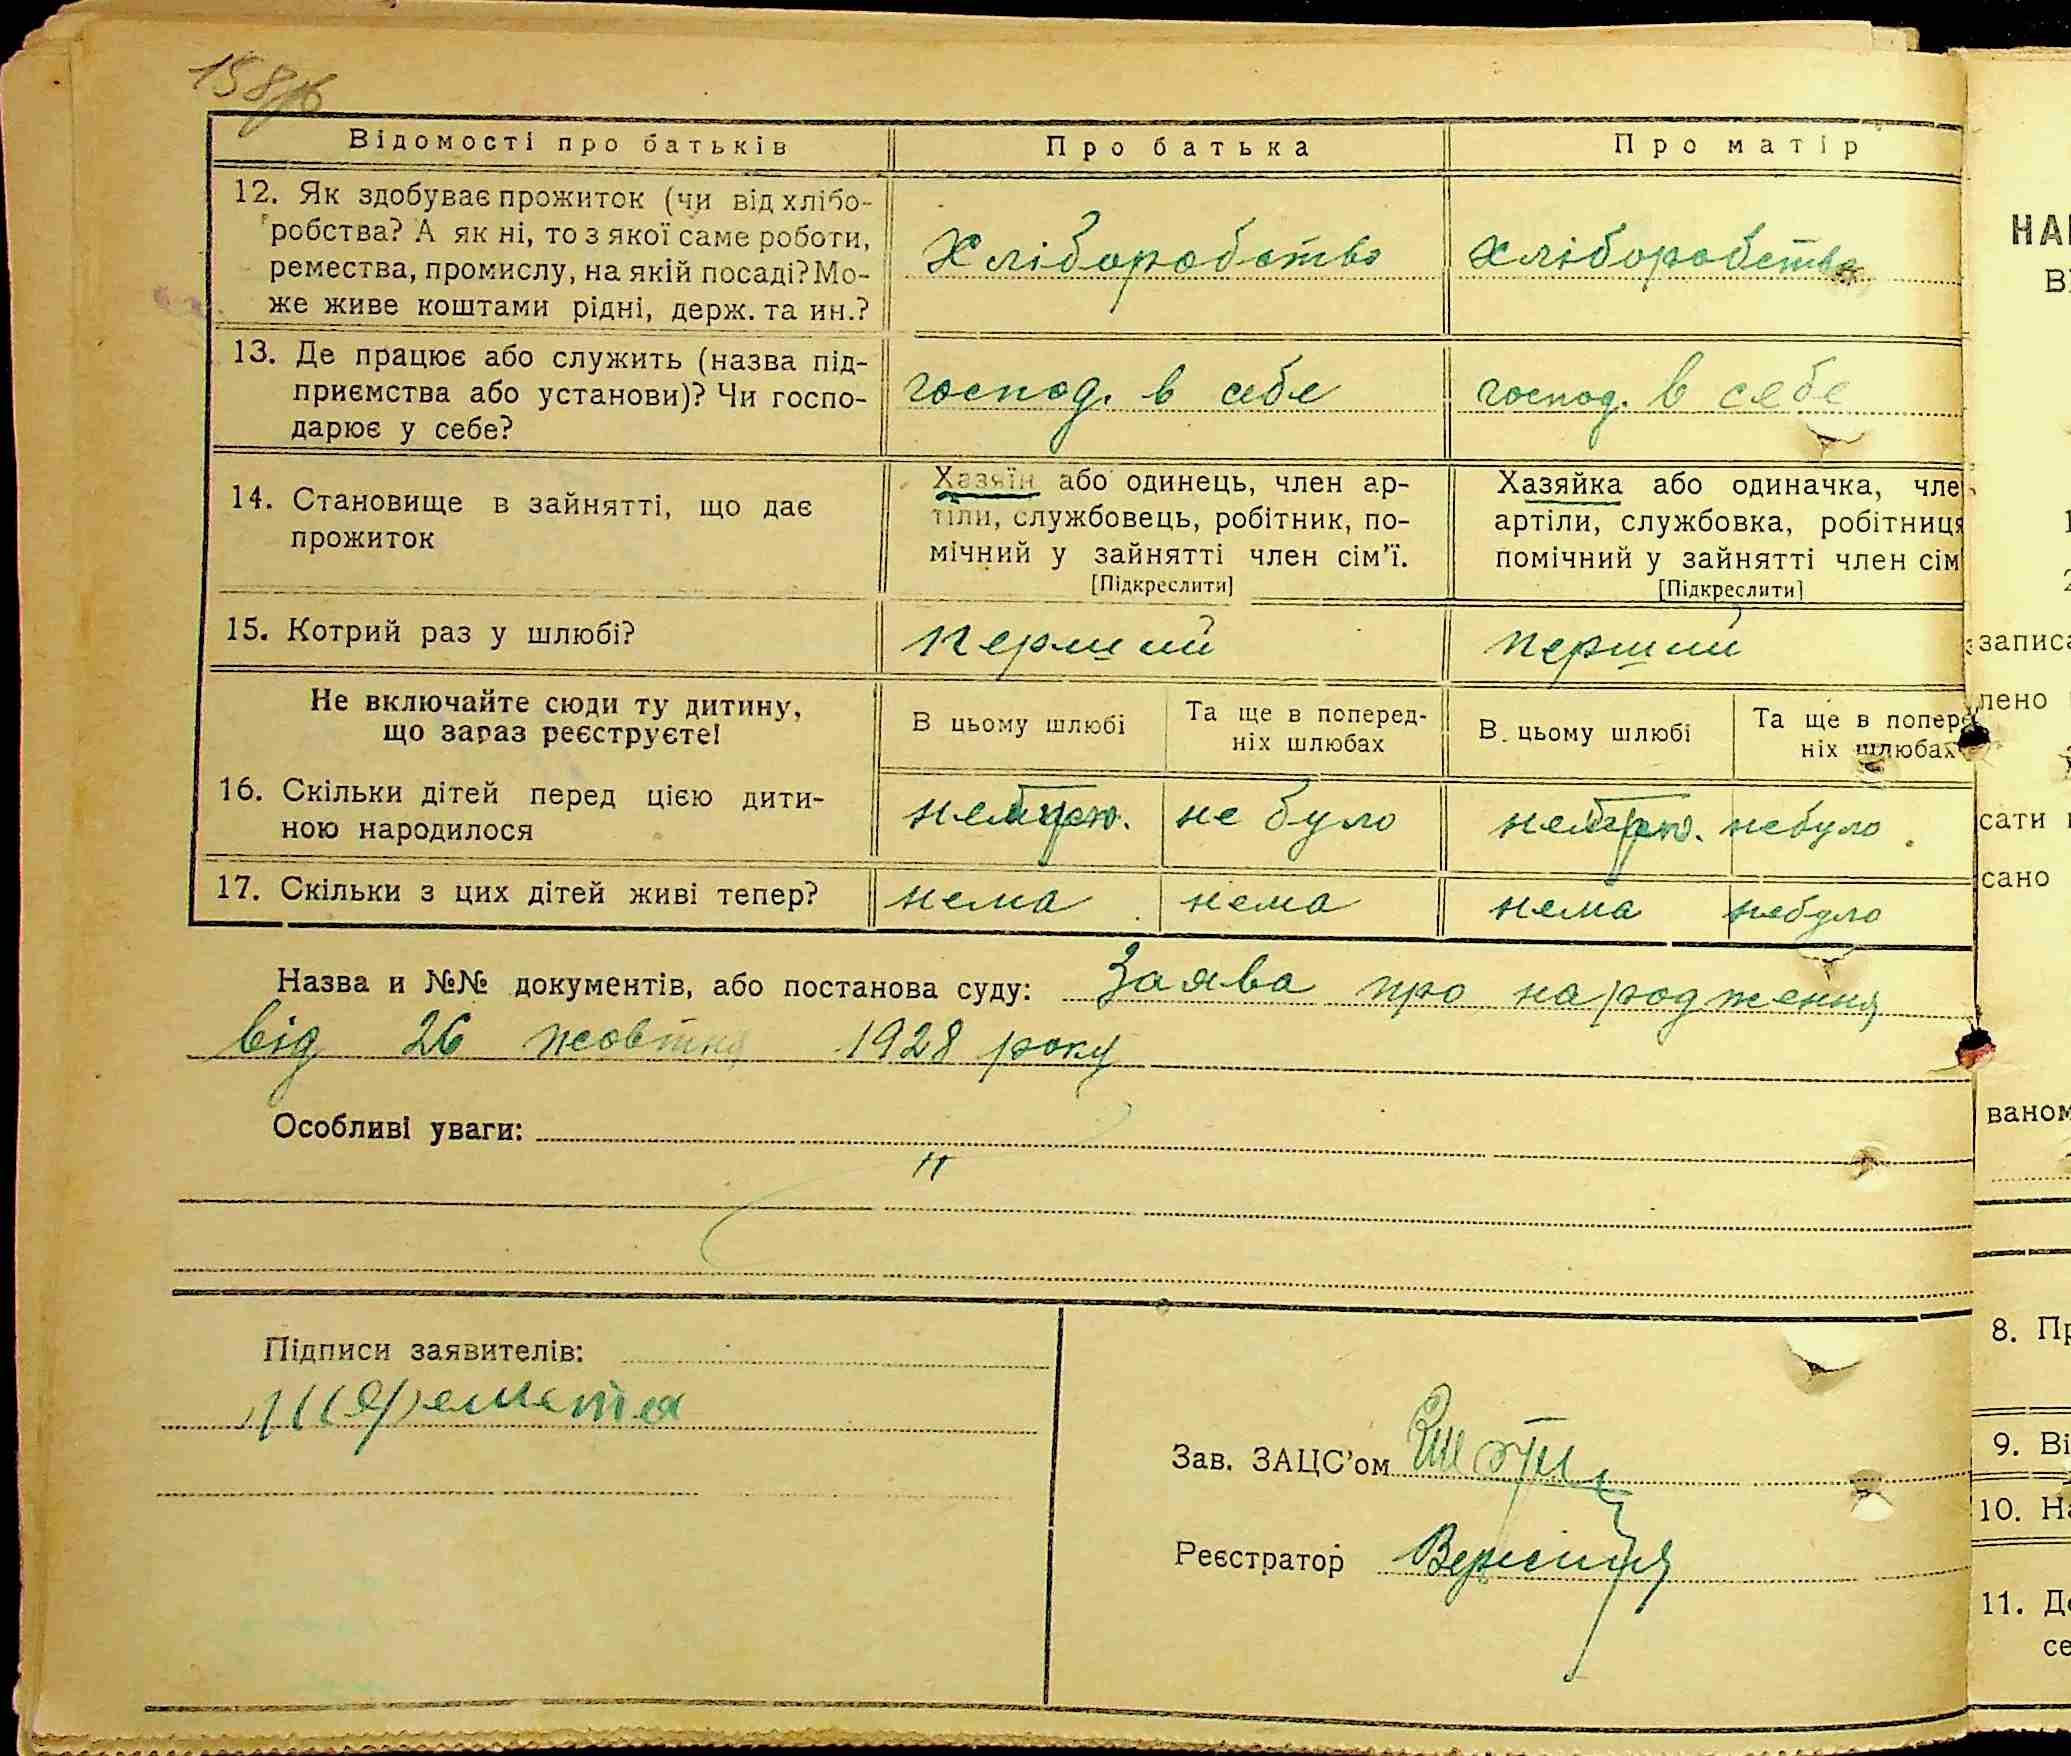 158
Відомості про батьків Про батька Про матір
12. Як здобуває прожиток (чи від хлібо-
робства? А як ні, то з якої саме роботи,
ремества, промислу, на якій посаді? Мо-
же живе коштами рідні, держ. та ин.?
Хліборобство хліборобство
13. Де працює або служить (назва під-
приємства або установи)? Чи госпо-
дарює у себе?
господ. в себе господ. в себе
14. Становище в зайнятті, що дає
прожиток
Хазяїн або одинець, член ар-
тіли, службовець, робітник, по-
мічний у зайнятті член сім'ї.
[Підкреслити]
Хазяйка або одиначка, чле
артіли, службовка, робітниця
помічний у зайнятті член сім
[Підкреслити]
15. Котрий раз у шлюбі? перший перший
Не включайте сюди ту дитину,
що зараз реєструєте!
В цьому шлюбі Та ще в поперед-
ніх шлюбах
В цьому шлюбі Та ще в попере
ніх шлюбах
16. Скільки дітей перед цією дити-
ною народилося
не було небуло
17. Скільки з цих дітей живі тепер? нема нема нема небуло
Назва и №№ документів, або постанова суду: Заява про народження
від 26 жовтня 1928 року
Особливі уваги:
"
Підписи заявителів:
Зав. ЗАЦС'ом
Реєстратор
НА
В
записа
лено
сати
сано
ваном
8. Пр
9. Ві
10. На
11. Де
се